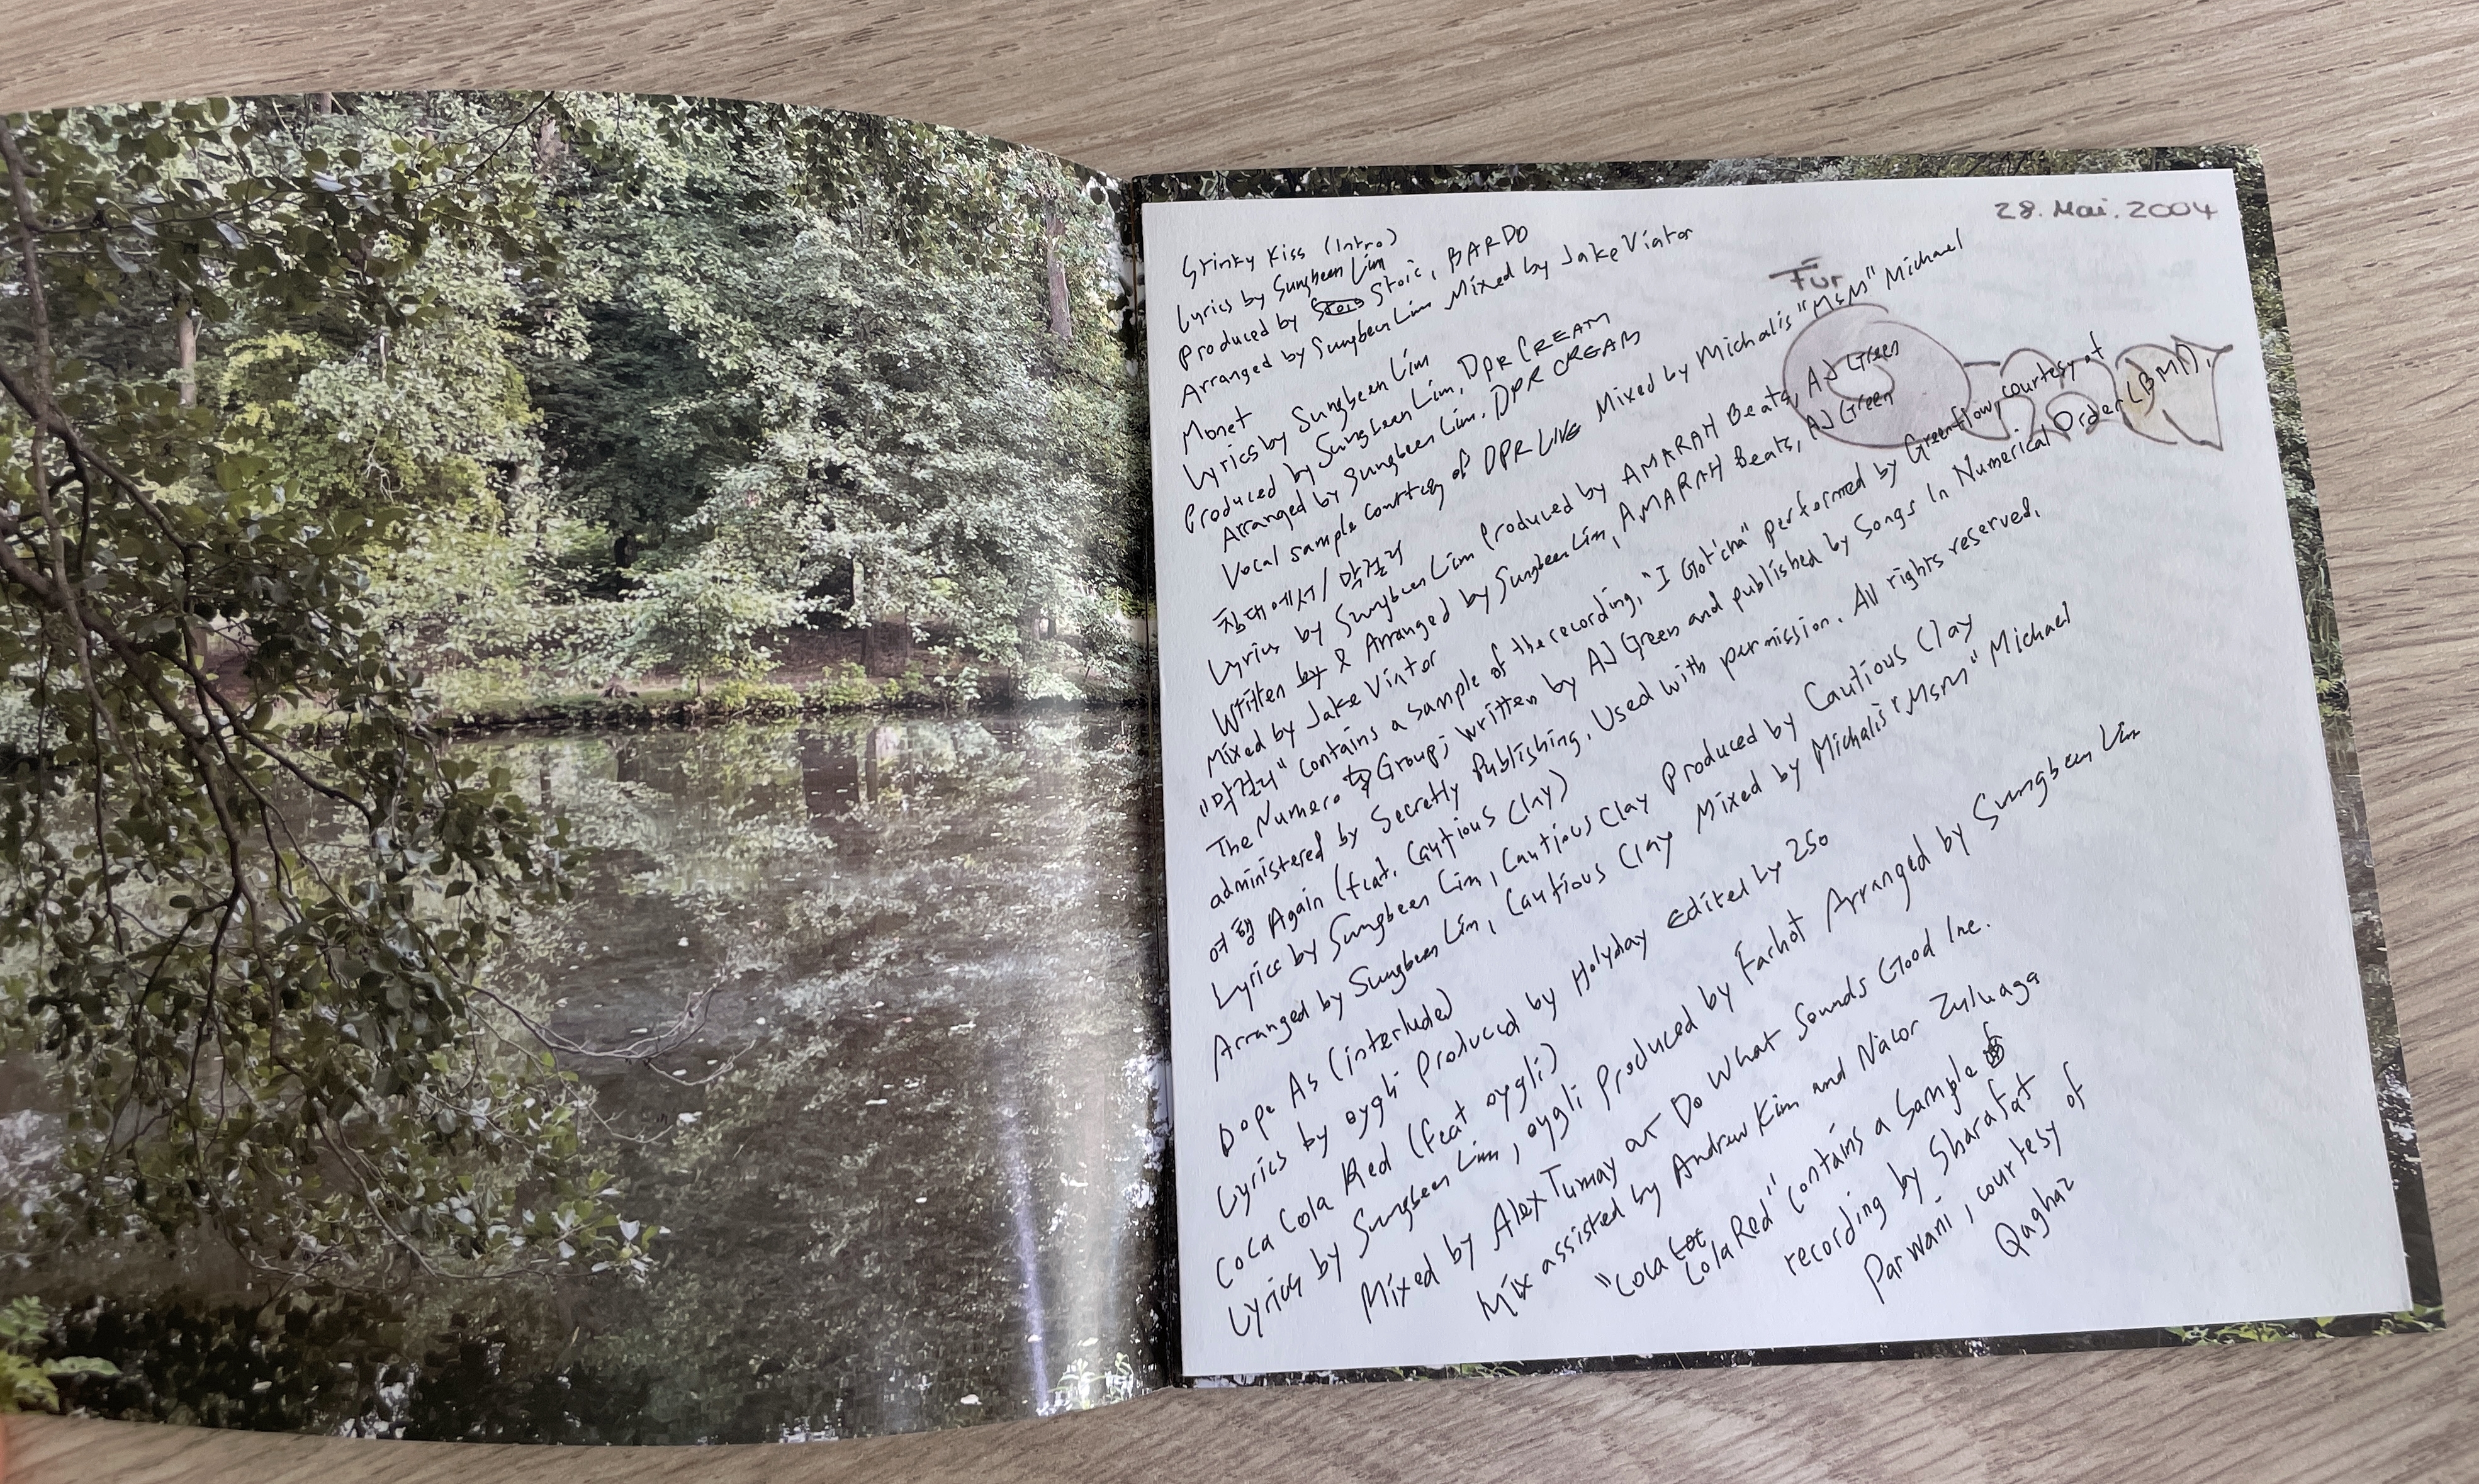 28. Mai. 2004
Für
Stinky Kiss (Intro)
Lyrics by Sungbeen Lim
Produced by Stoic, BARDO
Arranged by Sungbeen Lim Mixed by Jake Viator
Monet
Lyrics by Sungbeen Lim
Produced by Sungbeen Lim, DPR CREAM
Arranged by Sungbeen Lim, DPR CREAM
Vocal sample courtesy of DPR LIVE Mixed by Michalis "MsM" Michael
침대에서/막걸리
Lyrics by Sungbeen Lim Produced by AMARAH Beats, AJ Green
Written by & Arranged by Sungbeen Lim, AMARAH Beats, AJ Green
Mixed by Jake Viator
"막걸리" contains a sample of the recording, "I Got'cha" performed by Greenflow, courtesy of
The Numero Group; written by AJ Green and published by Songs In Numerical Order (BMI),
administered by Secretly Publishing. Used with permission. All rights reserved.
여행 Again (feat. Cautious Clay)
Lyrics by Sungbeen Lim, Cautious Clay Produced by Cautious Clay
Arranged by Sungbeen Lim, Cautious Clay Mixed by Michalis "MsM" Michael
Dope As (interlude)
Lyrics by oygli Produced by Holyday Edited by 250
Coca Cola Red (feat oygli)
Lyrics by Sungbeen Lim, oygli Produced by Farhot Arranged by Sungbeen Lim
Mixed by Alex Tumay at Do What Sounds Good Inc.
Mix assisted by Andrew Kim and Nacor Zuluaga
"Cola Cola Red" contains a sample
recording by Sharafat
Parwani, courtesy of
Qaghaz